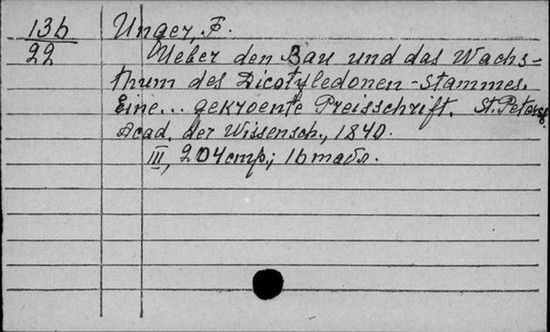 13b Unger, F.
22 Ueber den Bau und das Wachs-
thum des Dicotyledonen-stammes.
Eine... gekroente Preisschrift. St. Petersb.
Acad. der Wissensch., 1840.
III, 204 стр.; 16 табл.